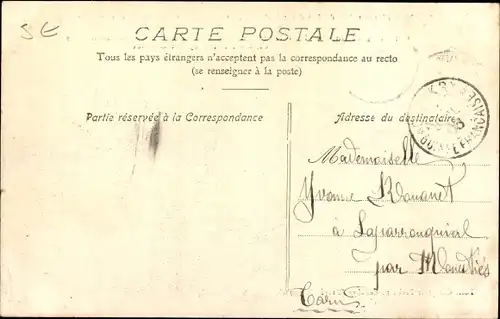 SE
CARTE POSTALE
Tous les pays étrangers n'acceptent pas la correspondance au recto
(se renseigner à la poste)
Partie réservée à la Correspondance
Adresse du destinataire
GUYANE FRANÇAISE
Mademoiselle
Yvonne Rouanet
à Laparrouquial
par Monestiés
Tarn